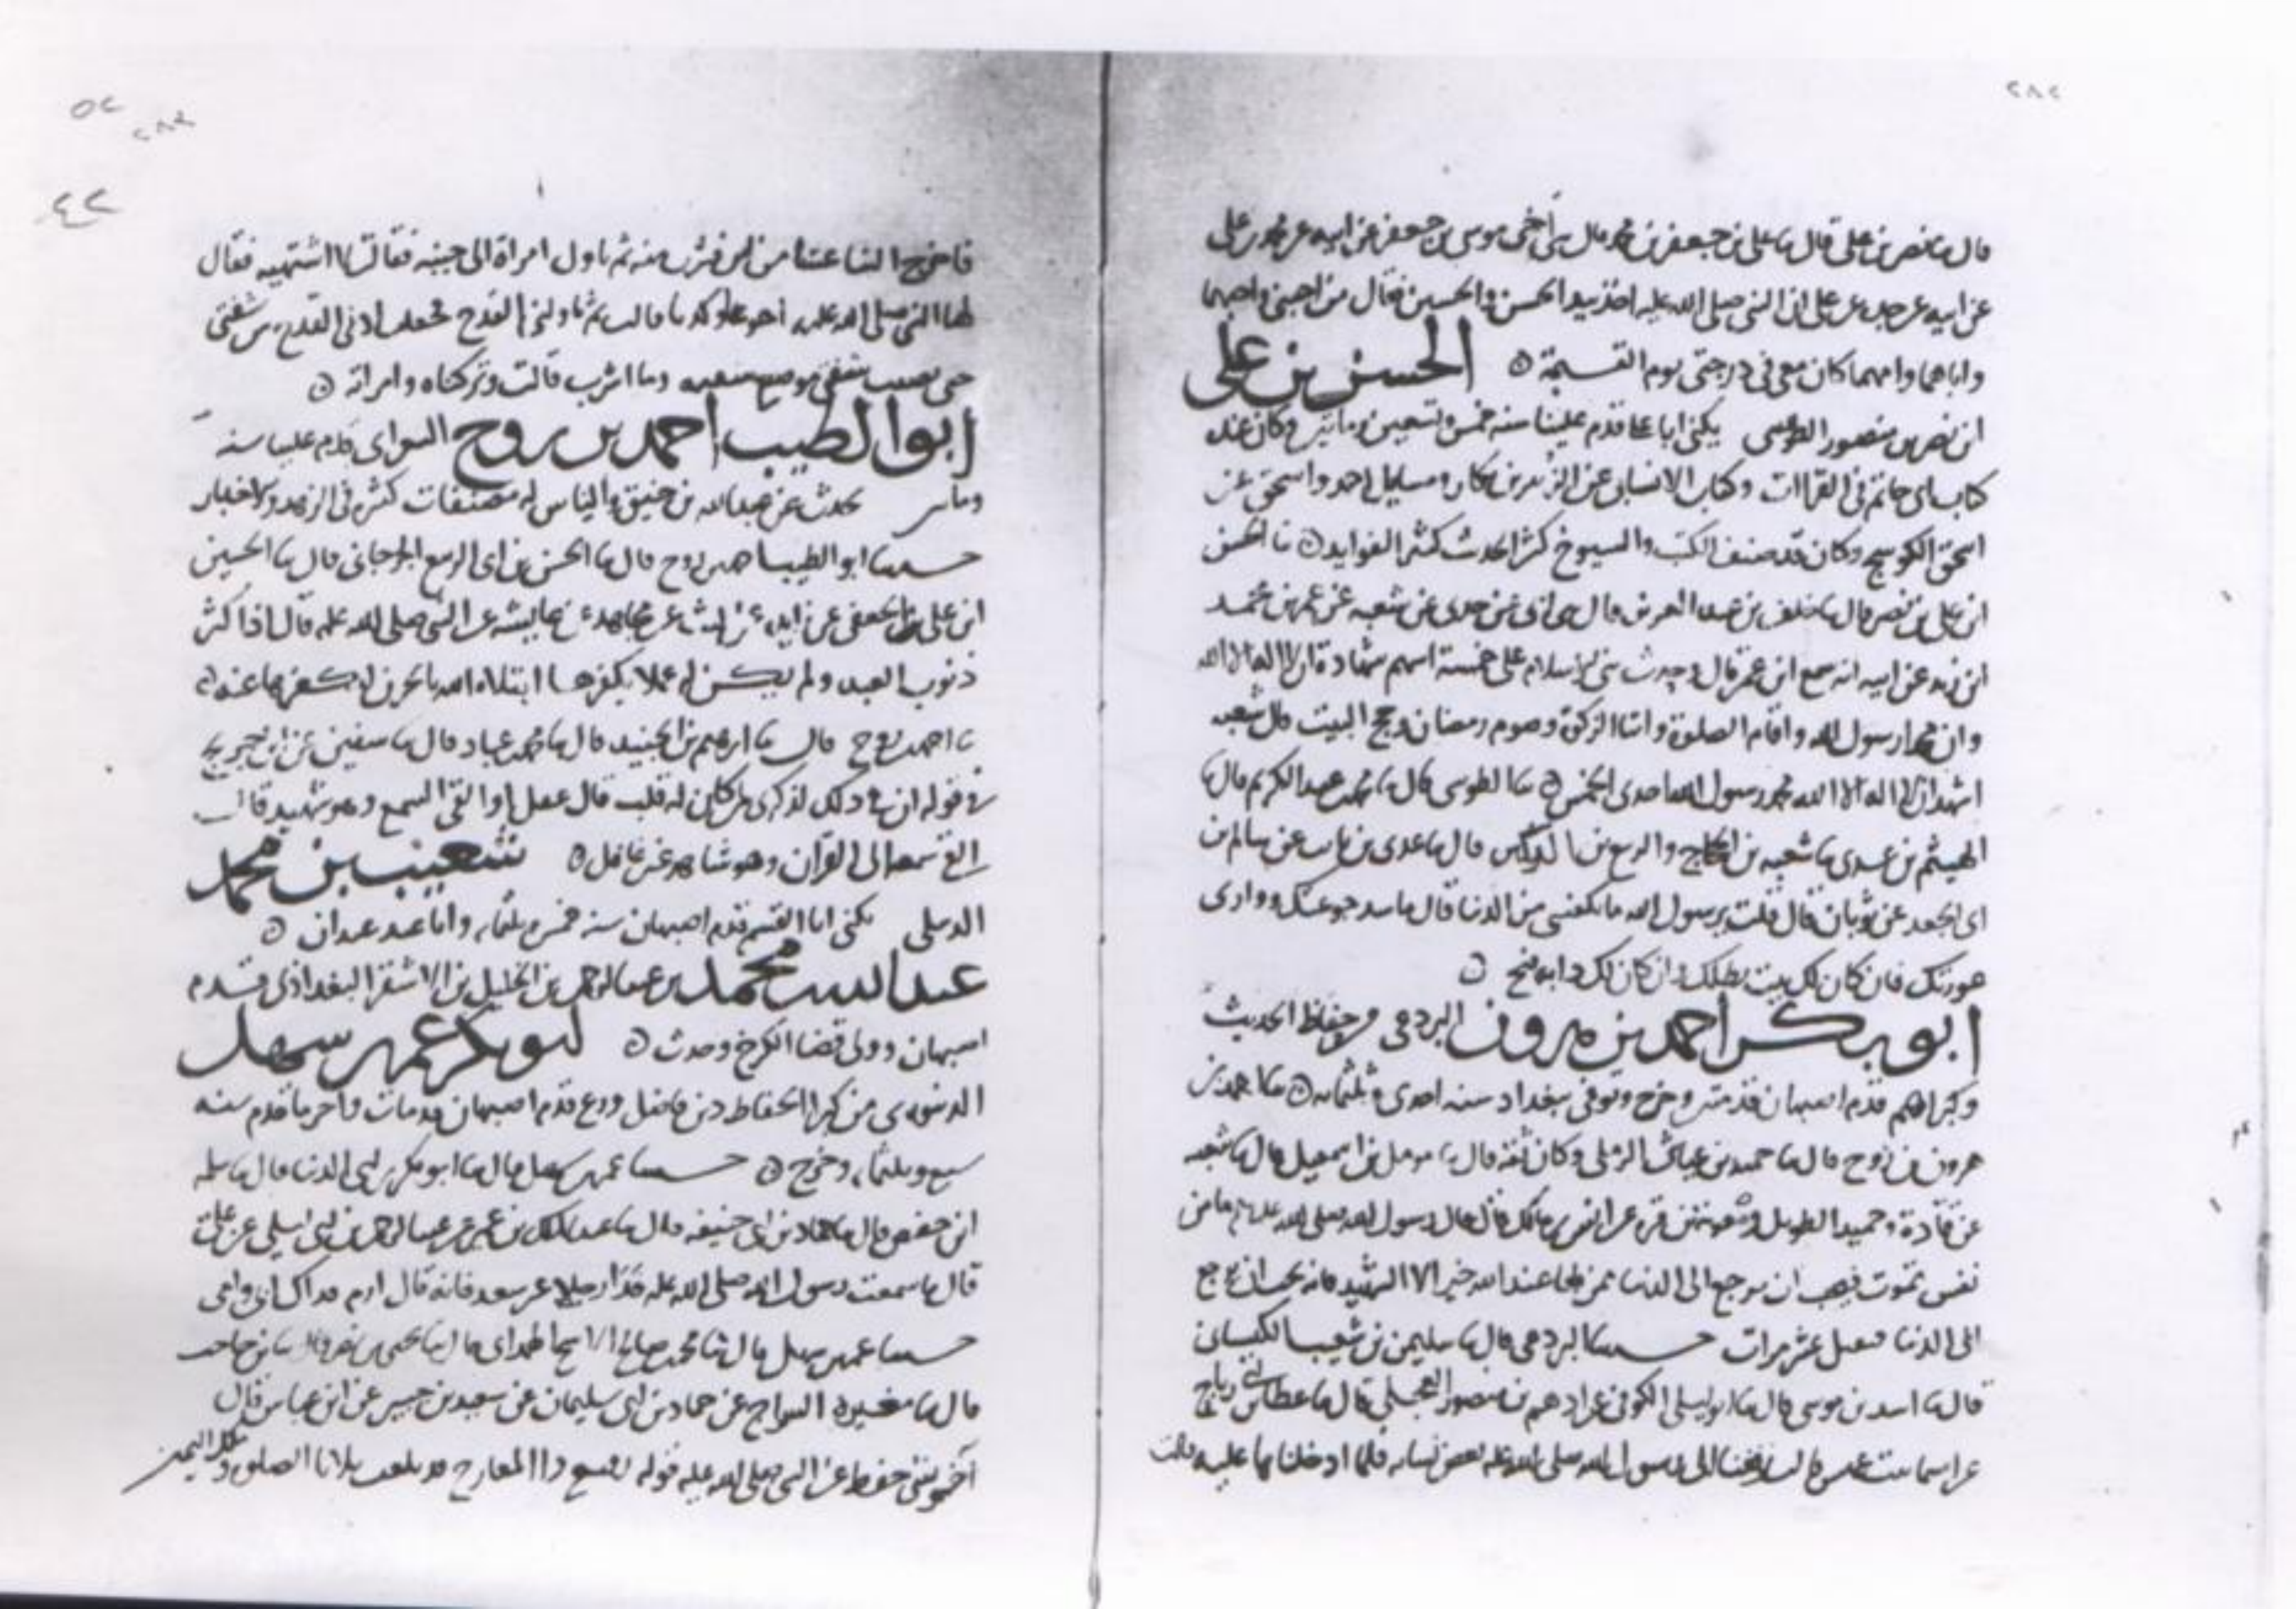 ٢٨٢
قال نا نصر بن علي قال نا علي بن جعفر بن محمد قال حدثني أخي موسى بن جعفر عن ابيه عن محمد بن علي
عن ابيه عن جده عن علي ان النبي صلى الله عليه اخذ بيد الحسن والحسين فقال من احبني واحبهما
واباهما وامهما كان معي في درجتي يوم القيمة ٥ الحسن بن علي
ابن نصر بن منصور الطوسي يكنى ابا علي قدم علينا سنه خمس وتسعين ومايتين وكان عنده
كتاب ابي حاتم في القراات وكتاب الانساب عن الزبير بن بكار ومسايل احمد واسحق عن
اسحق الكوسج وكان قد صنف الكتب والشيوخ كثير الحديث كثير الفوايد ٥ نا الحسن
ابن علي بن نصر قال نا خلف بن عبد العزيز قال حدثني ابي عن جدي عن شعبه عن عمر بن محمد
ابن زيد عن ابيه انه سمع ابن عمر قال بني الاسلام على خمسة اسهم شهادة ان لا اله الا الله
وان محمدا رسول الله واقام الصلوة وايتا الزكوة وصوم رمضان وحج البيت قال شعبه
اشهد ان لا اله الا الله محمد رسول الله احدى الخمس ٥ نا الطوسي قال نا محمد بن عبد الكريم قال نا
الهيثم بن عدي نا شعبه بن الحجاج والربيع بن قال نا عدي بن ثابت عن سالم بن
ابي الجعد عن ثوبان قال قلت يرسول الله ما يكفيني من الدنيا قال ما سد جوعتك ووارى
عورتك فان كان لك بيت يظلك وان كان لك دابه فبخ ٥
ابو بكر احمد بن هرون البردعي من حفاظ الحديث
وكبراهم قدم اصبهان قدمتين وخرج وتوفي ببغداد سنه احدى وثلثمايه ٥ نا احمد بن
هرون بن روح قال نا حميد بن عياش الرملي وكان ثقه قال نا مومل بن اسمعيل قال نا شعبه
عن قتادة وحميد الطويل ومعويه بن قره عن انس بن مالك قال قال رسول الله صلى الله عليه ما من
نفس تموت فيحب ان يرجع الى الدنيا ممن لها عند الله خير الا الشهيد فانه يحب ان يرجع
الى الدنيا فيقتل عشر مرات حدثنا البردعي قال نا سليمن بن شعيب الكيساني
قال نا اسد بن موسى قال نا ابو ليلى الكوفي عن ابراهيم بن منصور العجلي قال نا عطا بن ابي رباح
عن اسما بنت عميس قالت زففنا الى رسول الله صلى الله عليه بعض نسايه فلما ادخلناها عليه قالت
٥٢
٢٨٣
٤٢
فاخرج الينا عسا من لبن فشرب منه ثم ناول امراة الى جنبه فقالت لا اشتهيه فقال
لها النبي صلى الله عليه اجوعا وكذبا قالت ثم ناولني القدح فجعلت ادير القدح بين شفتي
حتى تصيب شفتي موضع شفتيه وما اشرب قالت وتركناه وامراته ٥
ابو الطيب احمد بن روح الشعراني قدم علينا سنه
ومايتين يحدث عن عبد الله بن خبيق والناس له مصنفات كثيره في الزهد والاخبار
حدثنا ابو الطيب احمد بن روح قال نا الحسن بن ابي الربيع الجرجاني قال نا الحسين
ابن علي الجعفي عن زايده عن ليث عن مجاهد عن عايشه عن النبي صلى الله عليه قال اذا كثر
ذنوب العبد ولم يكن له عملا يكفرها ابتلاه الله بالحزن ليكفرها عنه ٥
نا احمد بن روح قال نا ابرهيم بن الجنيد قال نا محمد بن عباد قال نا سفين عن ابن جريج
في قوله ان في ذلك لذكرى لمن كان له قلب قال عقل او القى السمع وهو شهيد قال
القى سمعه الى القران وهو شاهد غير غافل ٥ شعيب بن محمد
الدبيلي يكنى ابا القسم قدم اصبهان سنه خمس وثلثمايه واتا عند عبدان ٥
عبد الله بن محمد بن عبد الرحمن بن الخليل بن الاشقر البغداذي قدم
اصبهان وولي قضا الكرخ وحدث ٥ ابو بكر عمر بن سهل
الدينوري من كبرا الحفاظ دين فاضل ورع قدم اصبهان قدمات واخر ما قدم سنه
سبع وثلثمايه وخرج ٥ حدثنا عمر بن سهل قال نا ابو بكر بن ابي الدنيا قال نا
ابن حفص قال نا حماد بن ابي حنيفه قال نا عبد الملك بن عمير عن عبد الرحمن بن ابي ليلى عن علي
قال ما سمعت رسول الله صلى الله عليه فدا رجلا غير سعد فانه قال ارم فداك ابي وامي
حدثنا عمر بن سهل قال نا محمد بن صالح الاشج الهمداني قال نا يحيى بن نصر بن حاجب
قال نا مغيره السراج عن حماد بن ابي سليمان عن سعيد بن جبير عن ابن عباس قال